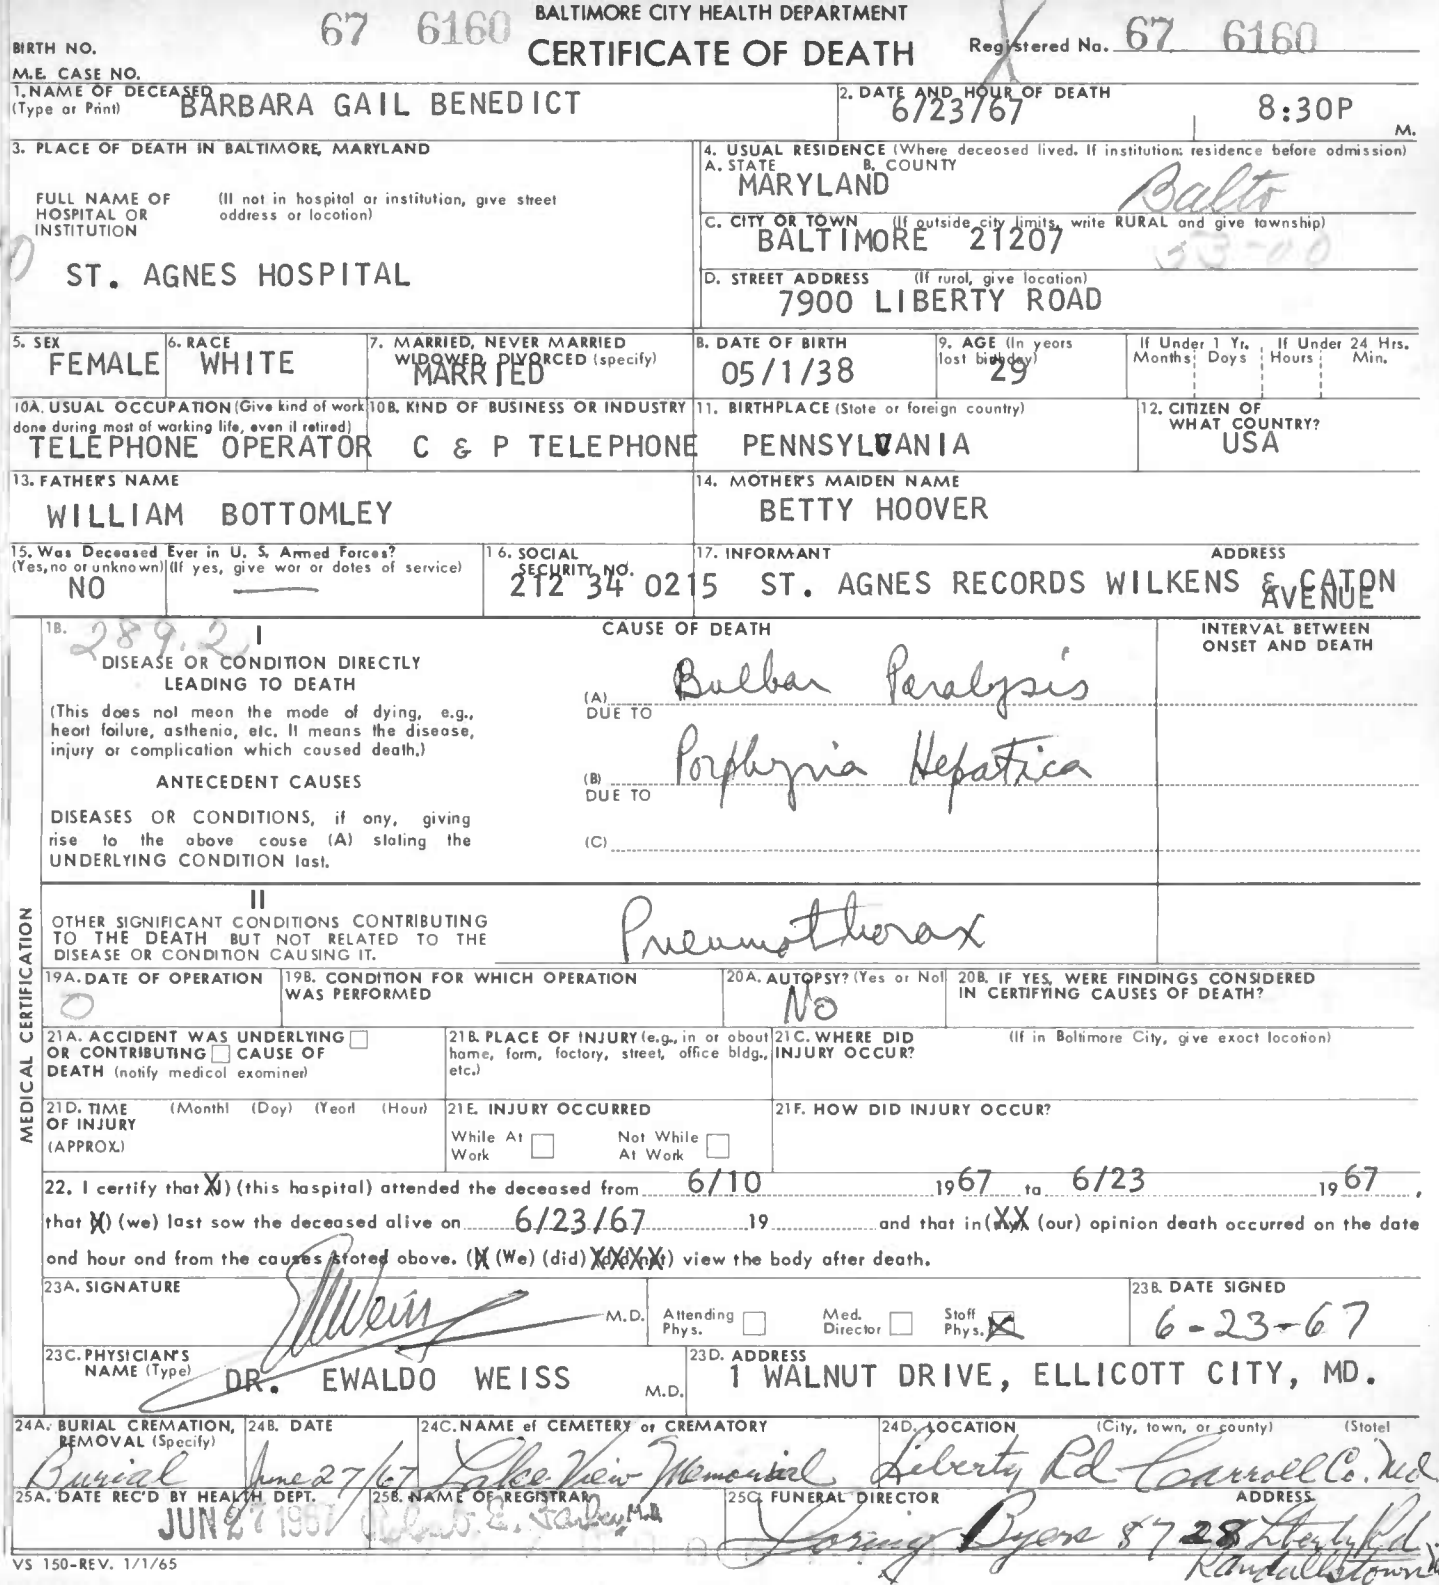 BALTIMORE CITY HEALTH DEPARTMENT
67 6160
CERTIFICATE OF DEATH
Registered No. 67 6160
BIRTH NO.
M.E. CASE NO.
1. NAME OF DECEASED
(Type or Print)
BARBARA GAIL BENEDICT
2. DATE AND HOUR OF DEATH
6/23/67 8:30P M.
3. PLACE OF DEATH IN BALTIMORE, MARYLAND
FULL NAME OF HOSPITAL OR INSTITUTION
(If not in hospital or institution, give street address or location)
ST. AGNES HOSPITAL
4. USUAL RESIDENCE (Where deceased lived. If institution: residence before admission)
A. STATE B. COUNTY
MARYLAND Balto
C. CITY OR TOWN (If outside city limits, write RURAL and give township)
BALTIMORE 21207
53-00
D. STREET ADDRESS (If rural, give location)
7900 LIBERTY ROAD
5. SEX
FEMALE
6. RACE
WHITE
7. MARRIED, NEVER MARRIED
WIDOWED, DIVORCED (specify)
MARRIED
8. DATE OF BIRTH
05/1/38
9. AGE (In years last birthday)
29
If Under 1 Yr. If Under 24 Hrs.
Months Days Hours Min.
10A. USUAL OCCUPATION (Give kind of work done during most of working life, even if retired)
TELEPHONE OPERATOR
10B. KIND OF BUSINESS OR INDUSTRY
C & P TELEPHONE
11. BIRTHPLACE (State or foreign country)
PENNSYLVANIA
12. CITIZEN OF WHAT COUNTRY?
USA
13. FATHER'S NAME
WILLIAM BOTTOMLEY
14. MOTHER'S MAIDEN NAME
BETTY HOOVER
15. Was Deceased Ever in U. S. Armed Forces?
(Yes, no or unknown) (If yes, give war or dates of service)
NO
16. SOCIAL SECURITY NO.
212 34 0215
17. INFORMANT ADDRESS
ST. AGNES RECORDS WILKENS & CATON
AVENUE
MEDICAL CERTIFICATION
18. 289.2 I
DISEASE OR CONDITION DIRECTLY
LEADING TO DEATH
(This does not mean the mode of dying, e.g.,
heart failure, asthenia, etc. It means the disease,
injury or complication which caused death.)
ANTECEDENT CAUSES
DISEASES OR CONDITIONS, if any, giving
rise to the above cause (A) stating the
UNDERLYING CONDITION last.
CAUSE OF DEATH
INTERVAL BETWEEN
ONSET AND DEATH
(A) Bulbar Paralysis
DUE TO
(B) Porphyria Hepatica
DUE TO
(C)
II
OTHER SIGNIFICANT CONDITIONS CONTRIBUTING
TO THE DEATH BUT NOT RELATED TO THE
DISEASE OR CONDITION CAUSING IT.
Pneumothorax
19A. DATE OF OPERATION
0
19B. CONDITION FOR WHICH OPERATION
WAS PERFORMED
20A. AUTOPSY? (Yes or No)
No
20B. IF YES, WERE FINDINGS CONSIDERED
IN CERTIFYING CAUSES OF DEATH?
21A. ACCIDENT WAS UNDERLYING
OR CONTRIBUTING CAUSE OF
DEATH (notify medical examiner)
21B. PLACE OF INJURY (e.g., in or about
home, farm, factory, street, office bldg.,
etc.)
21C. WHERE DID INJURY OCCUR?
(If in Baltimore City, give exact location)
21D. TIME OF INJURY
(APPROX.)
(Month) (Day) (Year) (Hour)
21E. INJURY OCCURRED
While At Work
Not While At Work
21F. HOW DID INJURY OCCUR?
22. I certify that X) (this hospital) attended the deceased from 6/10 1967 to 6/23 1967,
that X) (we) last saw the deceased alive on 6/23/67 19 and that in (XX (our) opinion death occurred on the date
and hour and from the causes stated above. (X (We) (did) XXXXX) view the body after death.
23A. SIGNATURE
EWeiss M.D.
Attending Phys.
Med. Director
Staff Phys. X
23B. DATE SIGNED
6-23-67
23C. PHYSICIAN'S NAME (Type)
DR. EWALDO WEISS M.D.
23D. ADDRESS
1 WALNUT DRIVE, ELLICOTT CITY, MD.
24A. BURIAL CREMATION, REMOVAL (Specify)
Burial
24B. DATE
June 27/67
24C. NAME of CEMETERY or CREMATORY
Lake View Memorial
24D. LOCATION (City, town, or county) (State)
Liberty Rd Carroll Co. Md
25A. DATE REC'D BY HEALTH DEPT.
JUN 27 1967
25B. NAME OF REGISTRAR
Robert E. Farber, M.D.
25C. FUNERAL DIRECTOR ADDRESS
Loring Byers 8728 Liberty Rd
Randallstown
VS 150-REV. 1/1/65